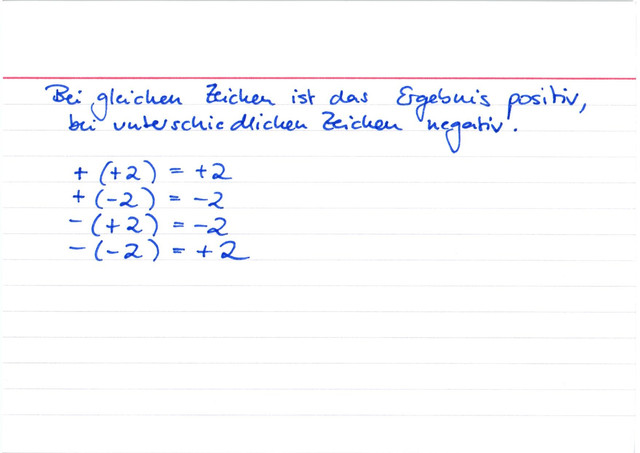 Bei gleichen Zeichen ist das Ergebnis positiv,
bei unterschiedlichen Zeichen negativ.
+ (+2) = +2
+ (-2) = -2
- (+2) = -2
- (-2) = +2